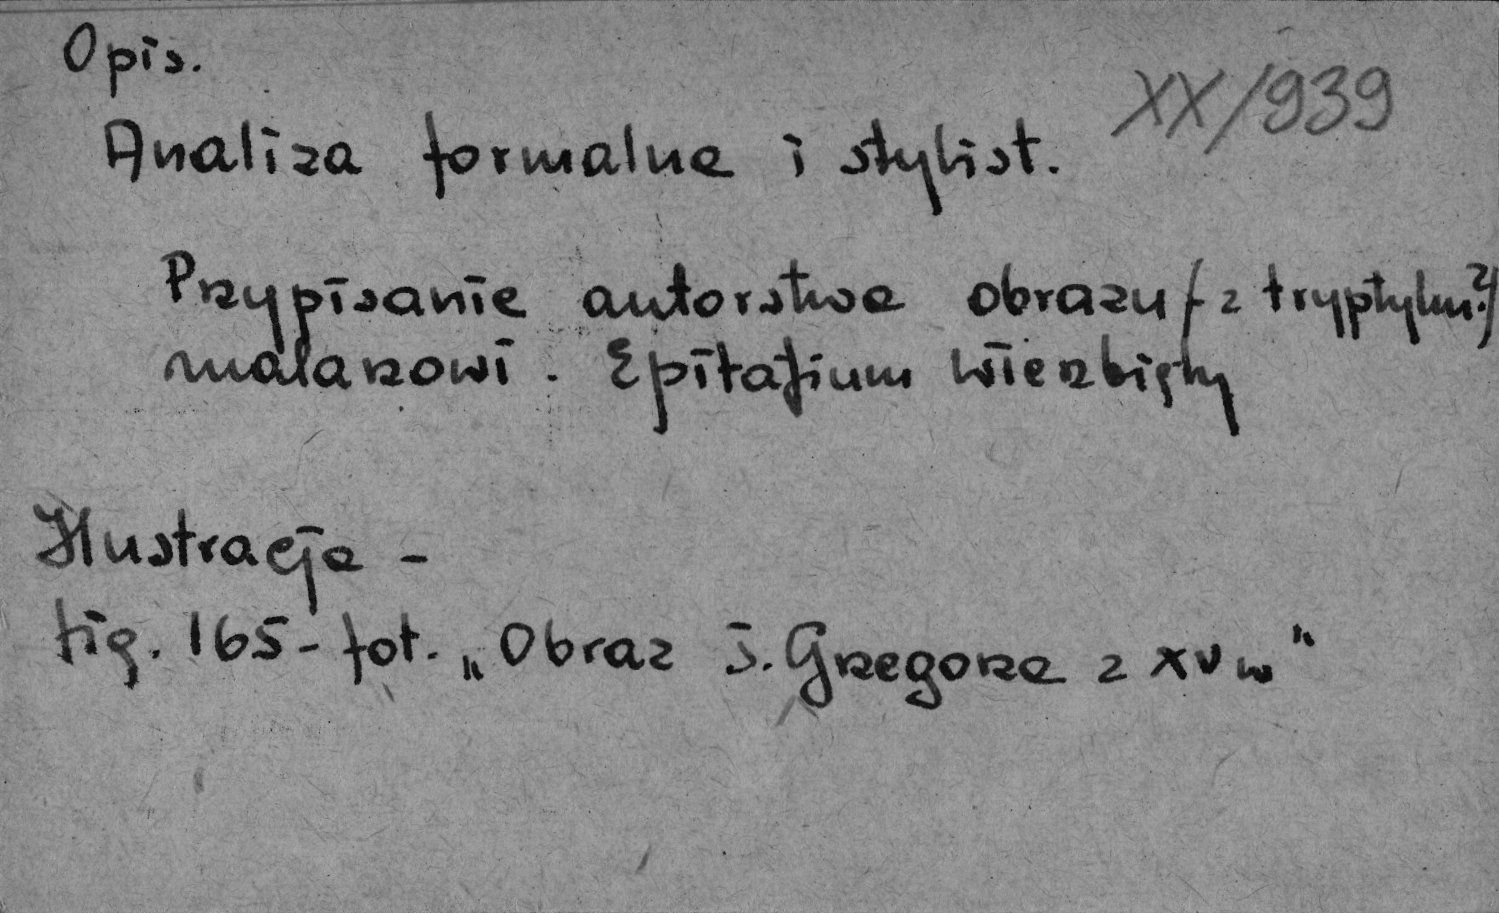 Opis.
XX/939
Analiza formalna i stylist.
Przypisanie autorstwa obrazu (z tryptyku?)
malarzowi. Epitafium Wierzbięty
Ilustracja -
fig. 165 - fot. „Obraz ś. Grzegorza z XV w"